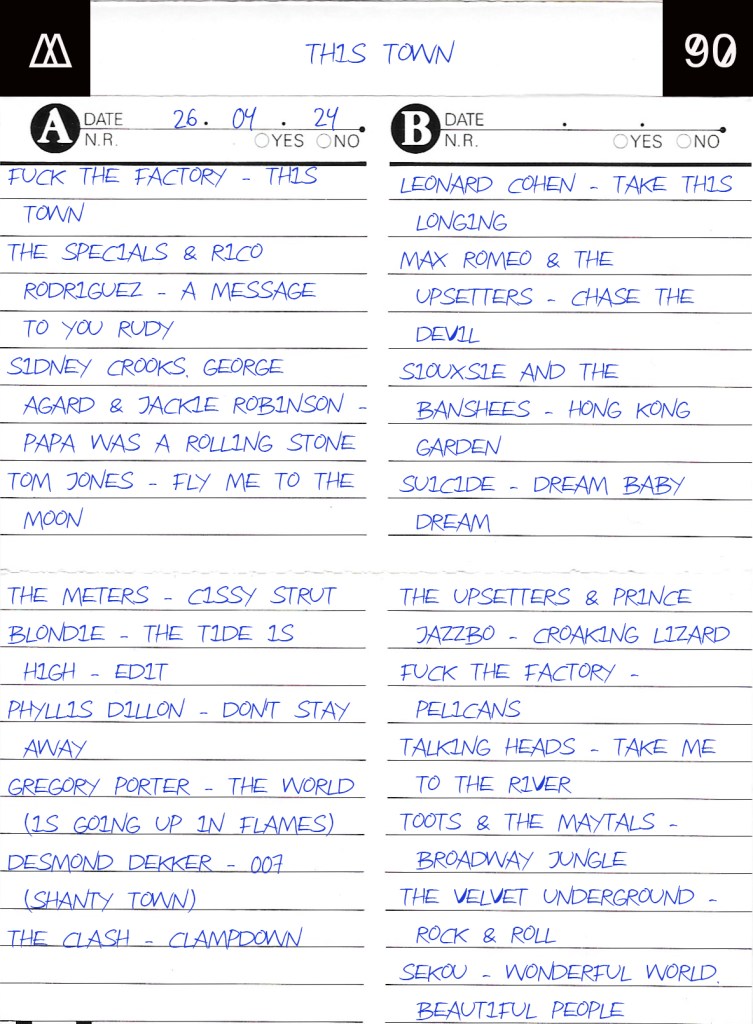 TH1S TOWN
90
A DATE 26. 04. 24.
N.R. YES NO
FUCK THE FACTORY - TH1S
TOWN
THE SPEC1ALS & R1CO
RODR1GUEZ - A MESSAGE
TO YOU RUDY
S1DNEY CROOKS, GEORGE
AGARD & JACK1E ROB1NSON -
PAPA WAS A ROLL1NG STONE
TOM JONES - FLY ME TO THE
MOON
THE METERS - C1SSY STRUT
BLOND1E - THE T1DE 1S
H1GH - ED1T
PHYLL1S D1LLON - DONT STAY
AWAY
GREGORY PORTER - THE WORLD
(1S GO1NG UP 1N FLAMES)
DESMOND DEKKER - 007
(SHANTY TOWN)
THE CLASH - CLAMPDOWN
B DATE . . .
N.R. YES NO
LEONARD COHEN - TAKE TH1S
LONG1NG
MAX ROMEO & THE
UPSETTERS - CHASE THE
DEV1L
S1OUXS1E AND THE
BANSHEES - HONG KONG
GARDEN
SU1C1DE - DREAM BABY
DREAM
THE UPSETTERS & PR1NCE
JAZZBO - CROAK1NG L1ZARD
FUCK THE FACTORY -
PEL1CANS
TALK1NG HEADS - TAKE ME
TO THE R1VER
TOOTS & THE MAYTALS -
BROADWAY JUNGLE
THE VELVET UNDERGROUND -
ROCK & ROLL
SEKOU - WONDERFUL WORLD,
BEAUT1FUL PEOPLE